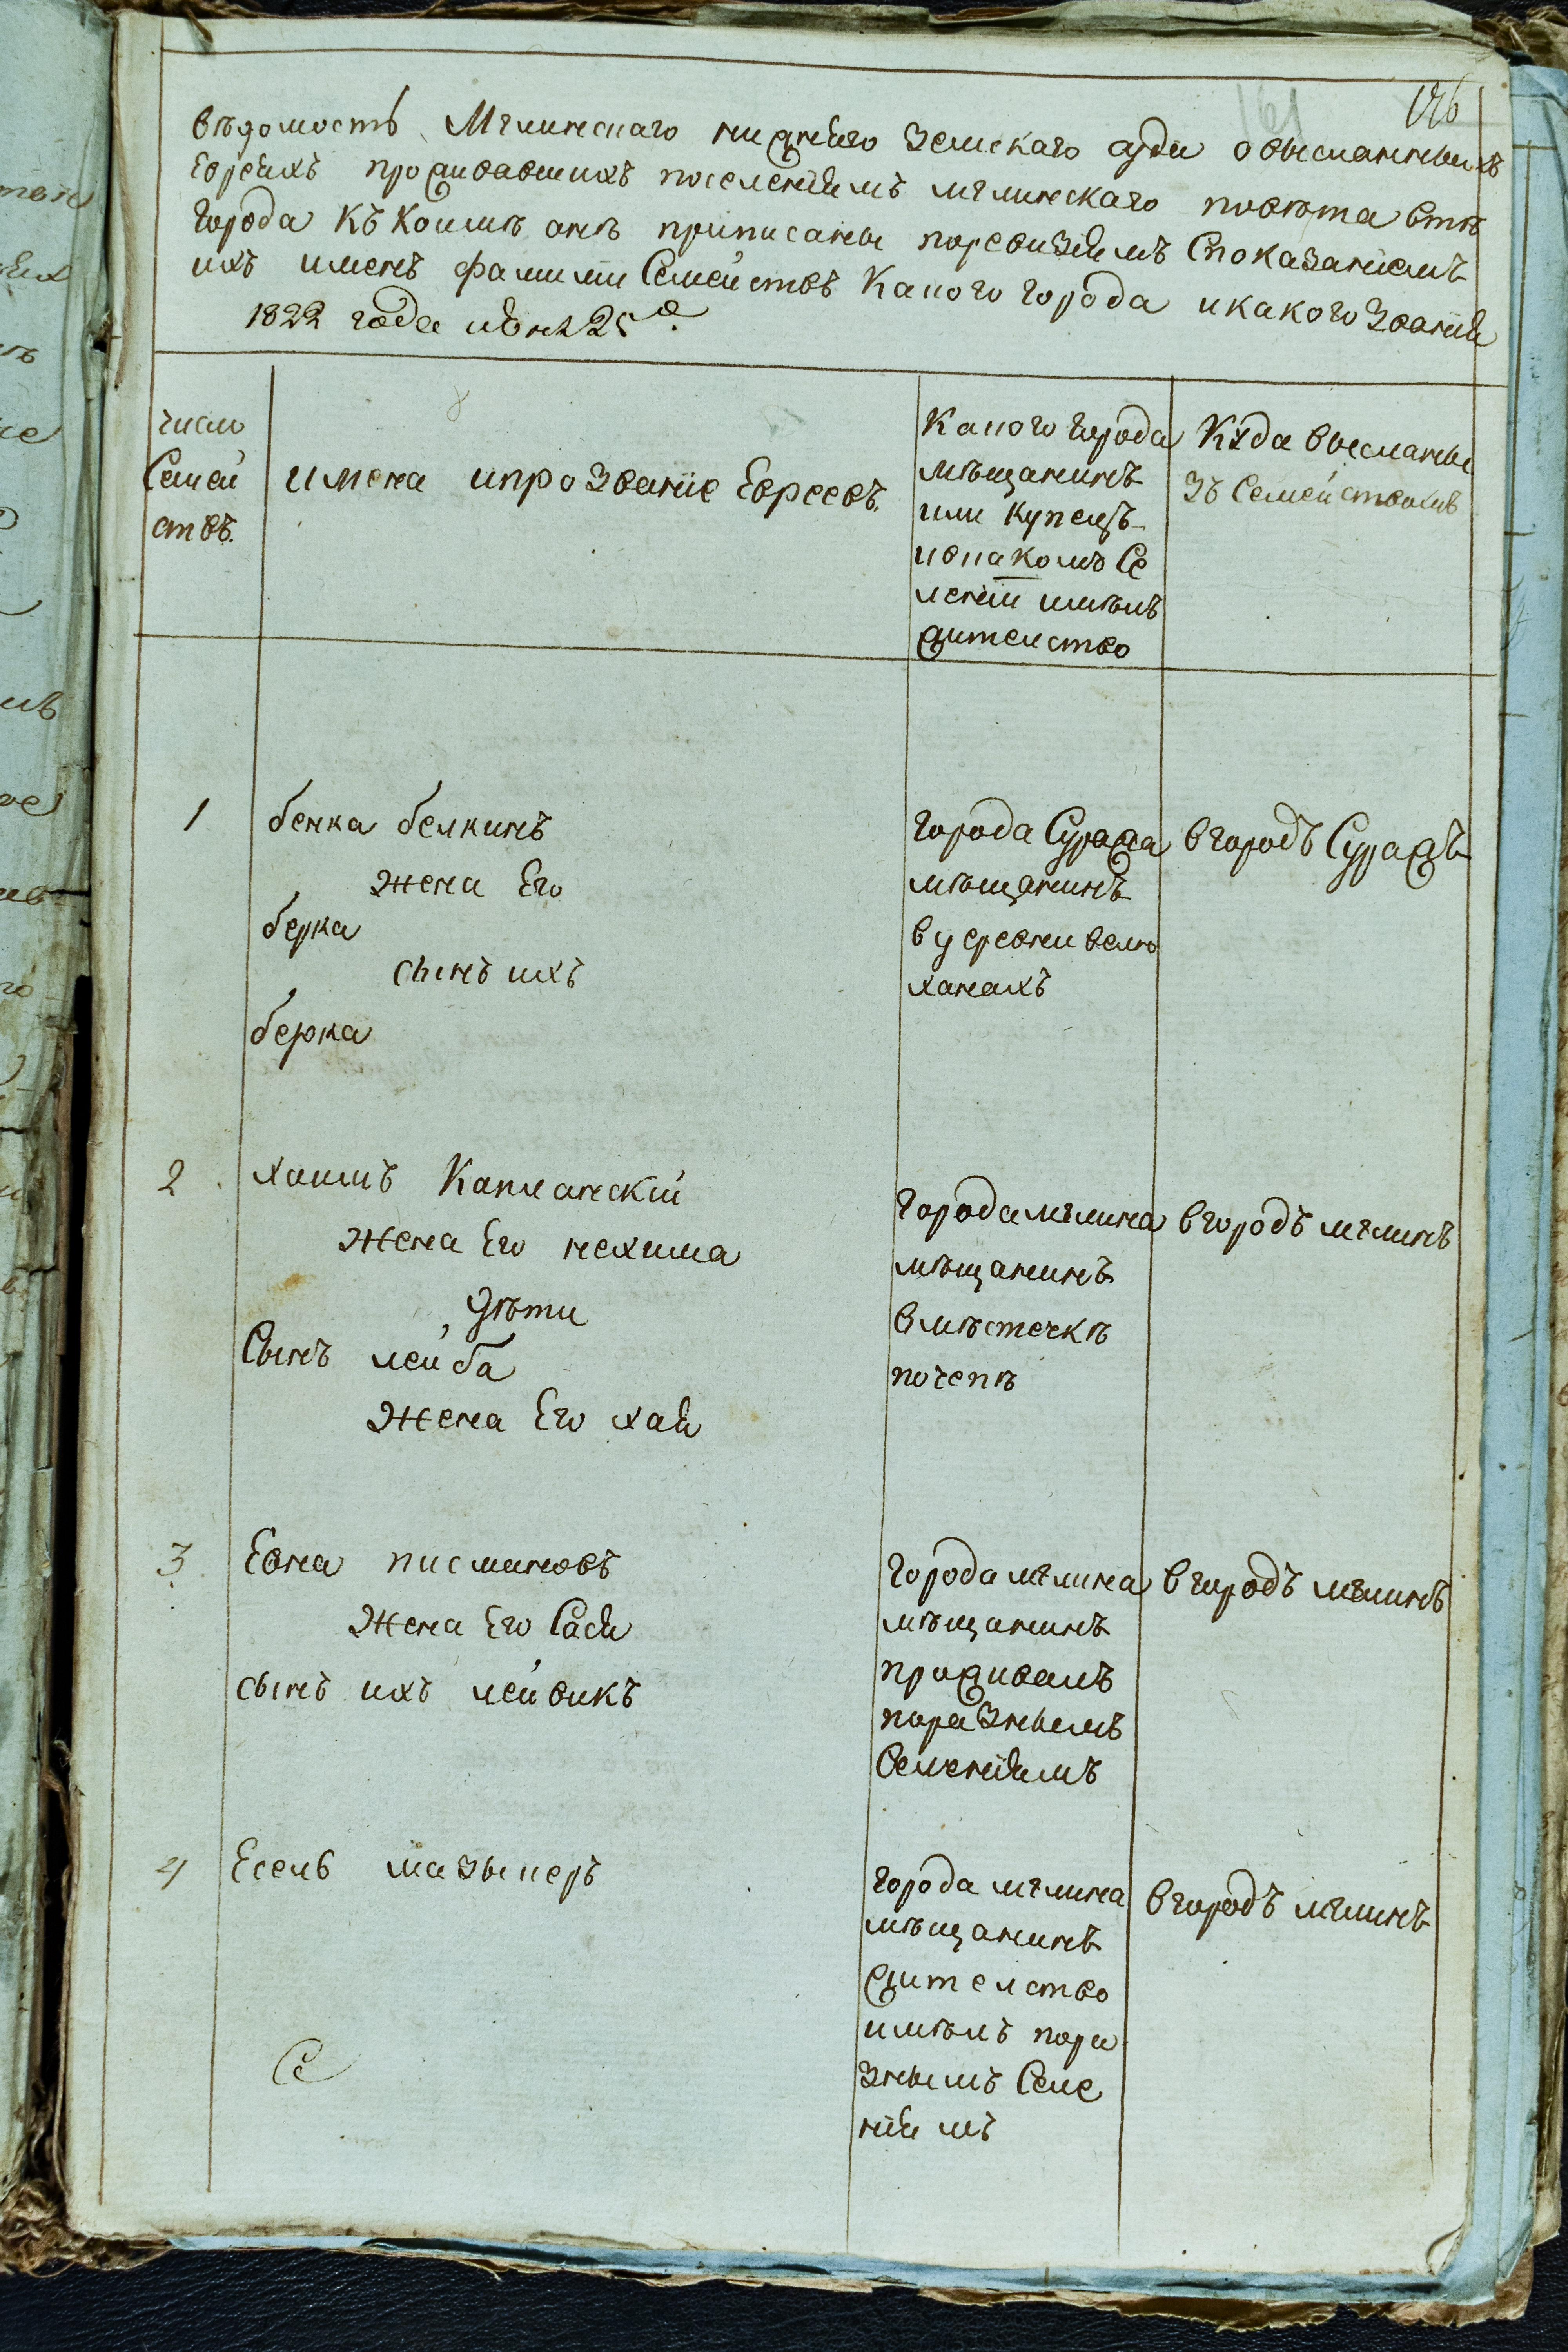 161
146
вѣдомость Мглинскаго нижнѣго Земскаго суда о высланныхъ
Евреяхъ проживавшихъ поселеніямъ мглинскаго повѣта втѣ
города къ коимъ онѣ приписаны поревизіямъ Споказаніемъ
ихъ именъ фамилии Семействъ Какого города икакого Званія
1822 года июня 25 д.
число
Семей
ствъ.
имена ипрозваніе Евреевъ.
Какого города
мѣщанинъ
или купецъ
ивнакомъ Се
леніи имѣлъ
жителство
Куда высланы
зъ Семействомъ
1
бенка белкинъ
жена Его
берка
сынъ ихъ
берка
города Суража
мѣщанинъ
в деревни велю
ханахъ
вгородъ Суражъ
2
хаимъ Капланскій
жена Его нехима
дѣти
Сынъ лейба
жена Его хая
города мглина
мѣщанинъ
вмѣстечкѣ
почепѣ
вгородъ мглинъ
3
Евна писмановъ
жена Его Сася
сынъ ихъ лейвикъ
города мглина
мѣщанинъ
проживалъ
поразнымъ
Селеніямъ
вгородъ мглинъ
4
Есель мазыперъ
города мглина
мѣщанинъ
жителство
имѣлъ пора
знымъ Селе
ніямъ
вгородъ мглинъ
Се